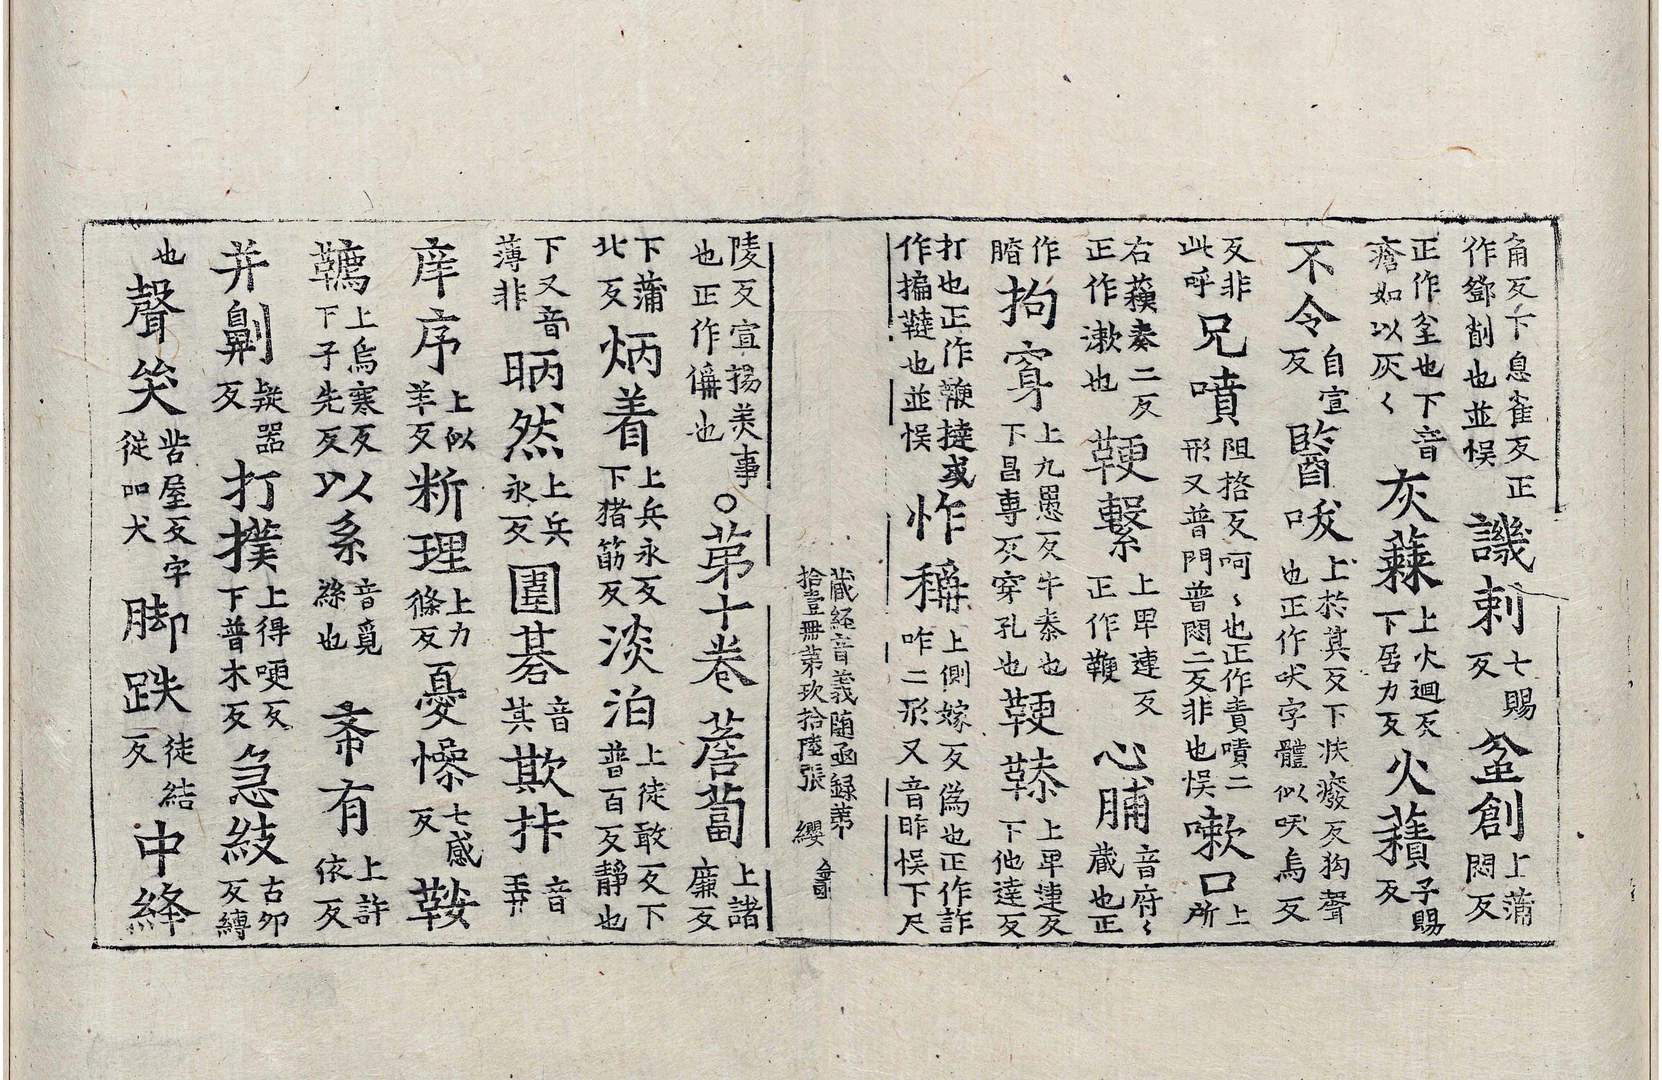 角反下息雀反正作鄧削也並悮 譏刺七賜反 坌創上蒲悶反
正作坌也下音瘡如以灰〻 灰蕀上火迴反下居力反 火𧂐子賜反
不令自宣反 毉㕹上於其反下扶癈反狗聲也正作吠字體似㕭烏反
反非此呼 兄噴阻挌反呵〻也正作責嘖二形又普門普悶二反非也悮 嗽口上所
右蘓奏二反正作漱也 鞕繫上卑連反正作鞭 心脯音府〻藏也正
作腑 拘穿上九愚反牛桊也下昌專反穿孔也 鞕㯂上卑連反下他達反
打也正作鞭撻或作揙韃也並悮 怍稱上側嫁反偽也正作詐咋二形又音昨悮下尺
藏経音義随函録第拾壹冊第玖拾陸張 纓
陵反宣揚美事也正作偁也 ○第十卷 䓊蔔上諸廉反
下蒲北反 炳着上兵永反下猪筯反 淡泊上徒敢反下普百反靜也
下又音薄非 昞然上兵永反 圍碁音其 欺抃音弄
庠序上似羊反 断理上力條反 憂懆七感反 鞍
韉上烏寒反下子先反 以系音覓絲也 希有上許依反
并劓疑器反 打撲上得哽反下普木反 急紋古夘反縛
也 聲哭苦屋反字従吅犬 脚跌徒結反 中絳